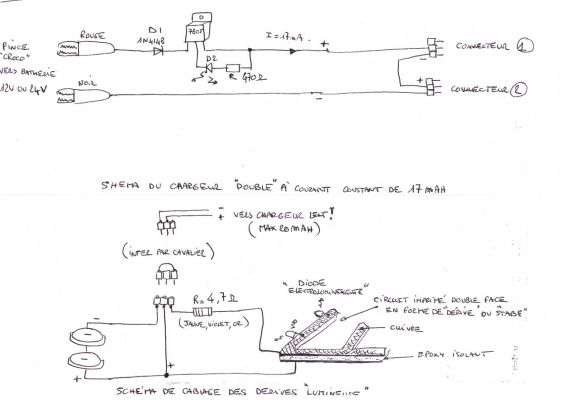 D1
ROUGE
1N4148
7805
I = 17mA
+
PINCE
"CROCO"
VERS BATTERIE
12V OU 24V
D2
R 470Ω
CONNECTEUR 1
-
+
NOIR
-
CONNECTEUR 2
SHEMA DU CHARGEUR "DOUBLE" A COURANT CONSTANT DE 17 mAH
- 
+ VERS CHARGEUR LENT!
(MAX 20 mAH)
(INTER PAR CAVALIER)
"DIODE
ELECTROLUMINESCENTE"
R = 4,7 Ω
(JAUNE, VIOLET, OR)
CIRCUIT IMPRIMÉ DOUBLE FACE
EN FORME DE "DÉRIVE" OU "STAB"
CUIVRE
-
+
EPOXY ISOLANT
+
SCHÉMA DE CABLAGE DES DERIVES "LUMINEUSE"